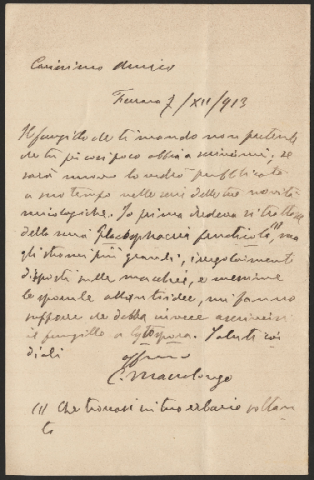 Carissimo Amico
Ferrara 7/XII/913
Il funghetto che ti mando non pretende
che tu più così poco abbia a scrivermi; se
sarà nuovo lo vedrò pubblicato
a suo tempo nelle serie delle tue novità
micologiche. Io prima credevo si trattasse
della semi Placosphaeria (1), ma
gli stromi più grandi, irregolarmente
disposti sulle macchie, e
le sporule allantoidee, mi fanno
supporre che debba invece ascriversi
il funghillo a Cytospora. Saluti cor
diali
affmo
C. Massalongo
(1) Che trovasi in tuo erbario soltan
to